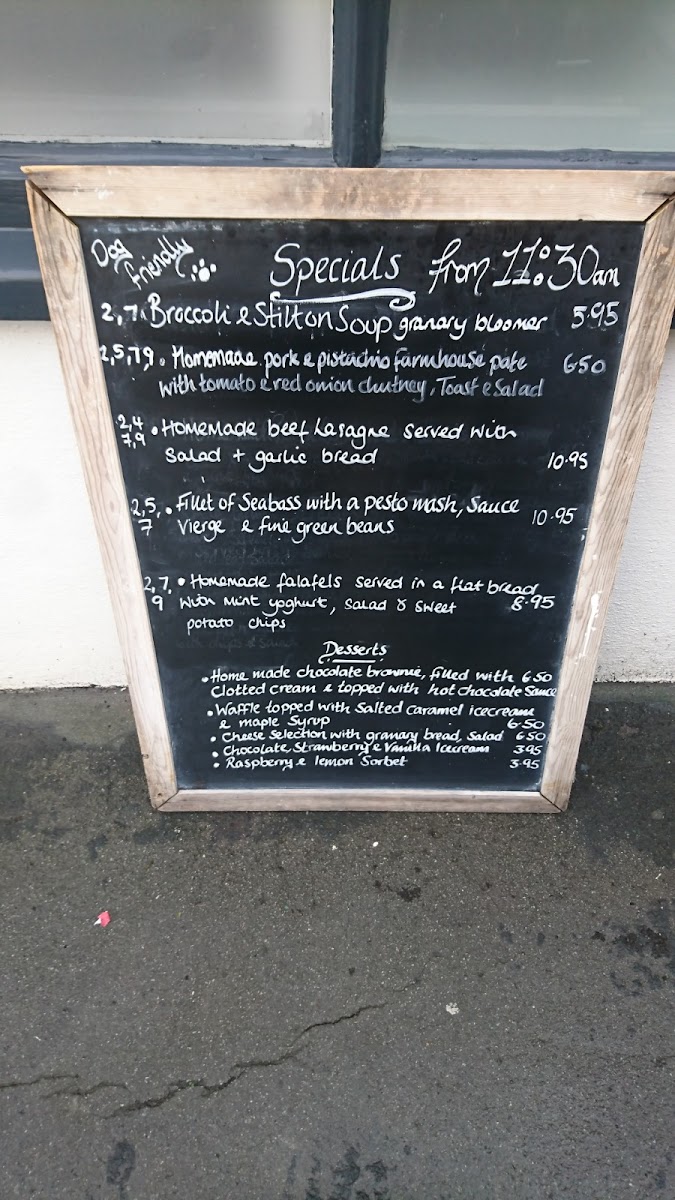 Dog friendly
Specials from 11:30am
2,7. Broccoli & Stilton Soup granary bloomer 5.95
2,5,7,9. Homemade pork & pistachio farmhouse pate 6.50
with tomato & red onion chutney, Toast & Salad
2,4 • Homemade beef Lasagne served with
7,9 Salad + garlic bread 10.95
2,5, • Fillet of Seabass with a pesto mash, Sauce 10.95
7 Vierge & fine green beans
2,7, • Homemade falafels served in a flat bread
9 with Mint yoghurt, Salad & Sweet 8.95
potato chips
Desserts
• Home made chocolate brownie, filled with 6.50
Clotted cream & topped with hot chocolate Sauce
• Waffle topped with Salted Caramel icecream
& maple Syrup 6.50
• Cheese Selection with granary bread, Salad 6.50
• Chocolate, Strawberry & Vanilla Icecream 3.95
• Raspberry & lemon Sorbet 3.95